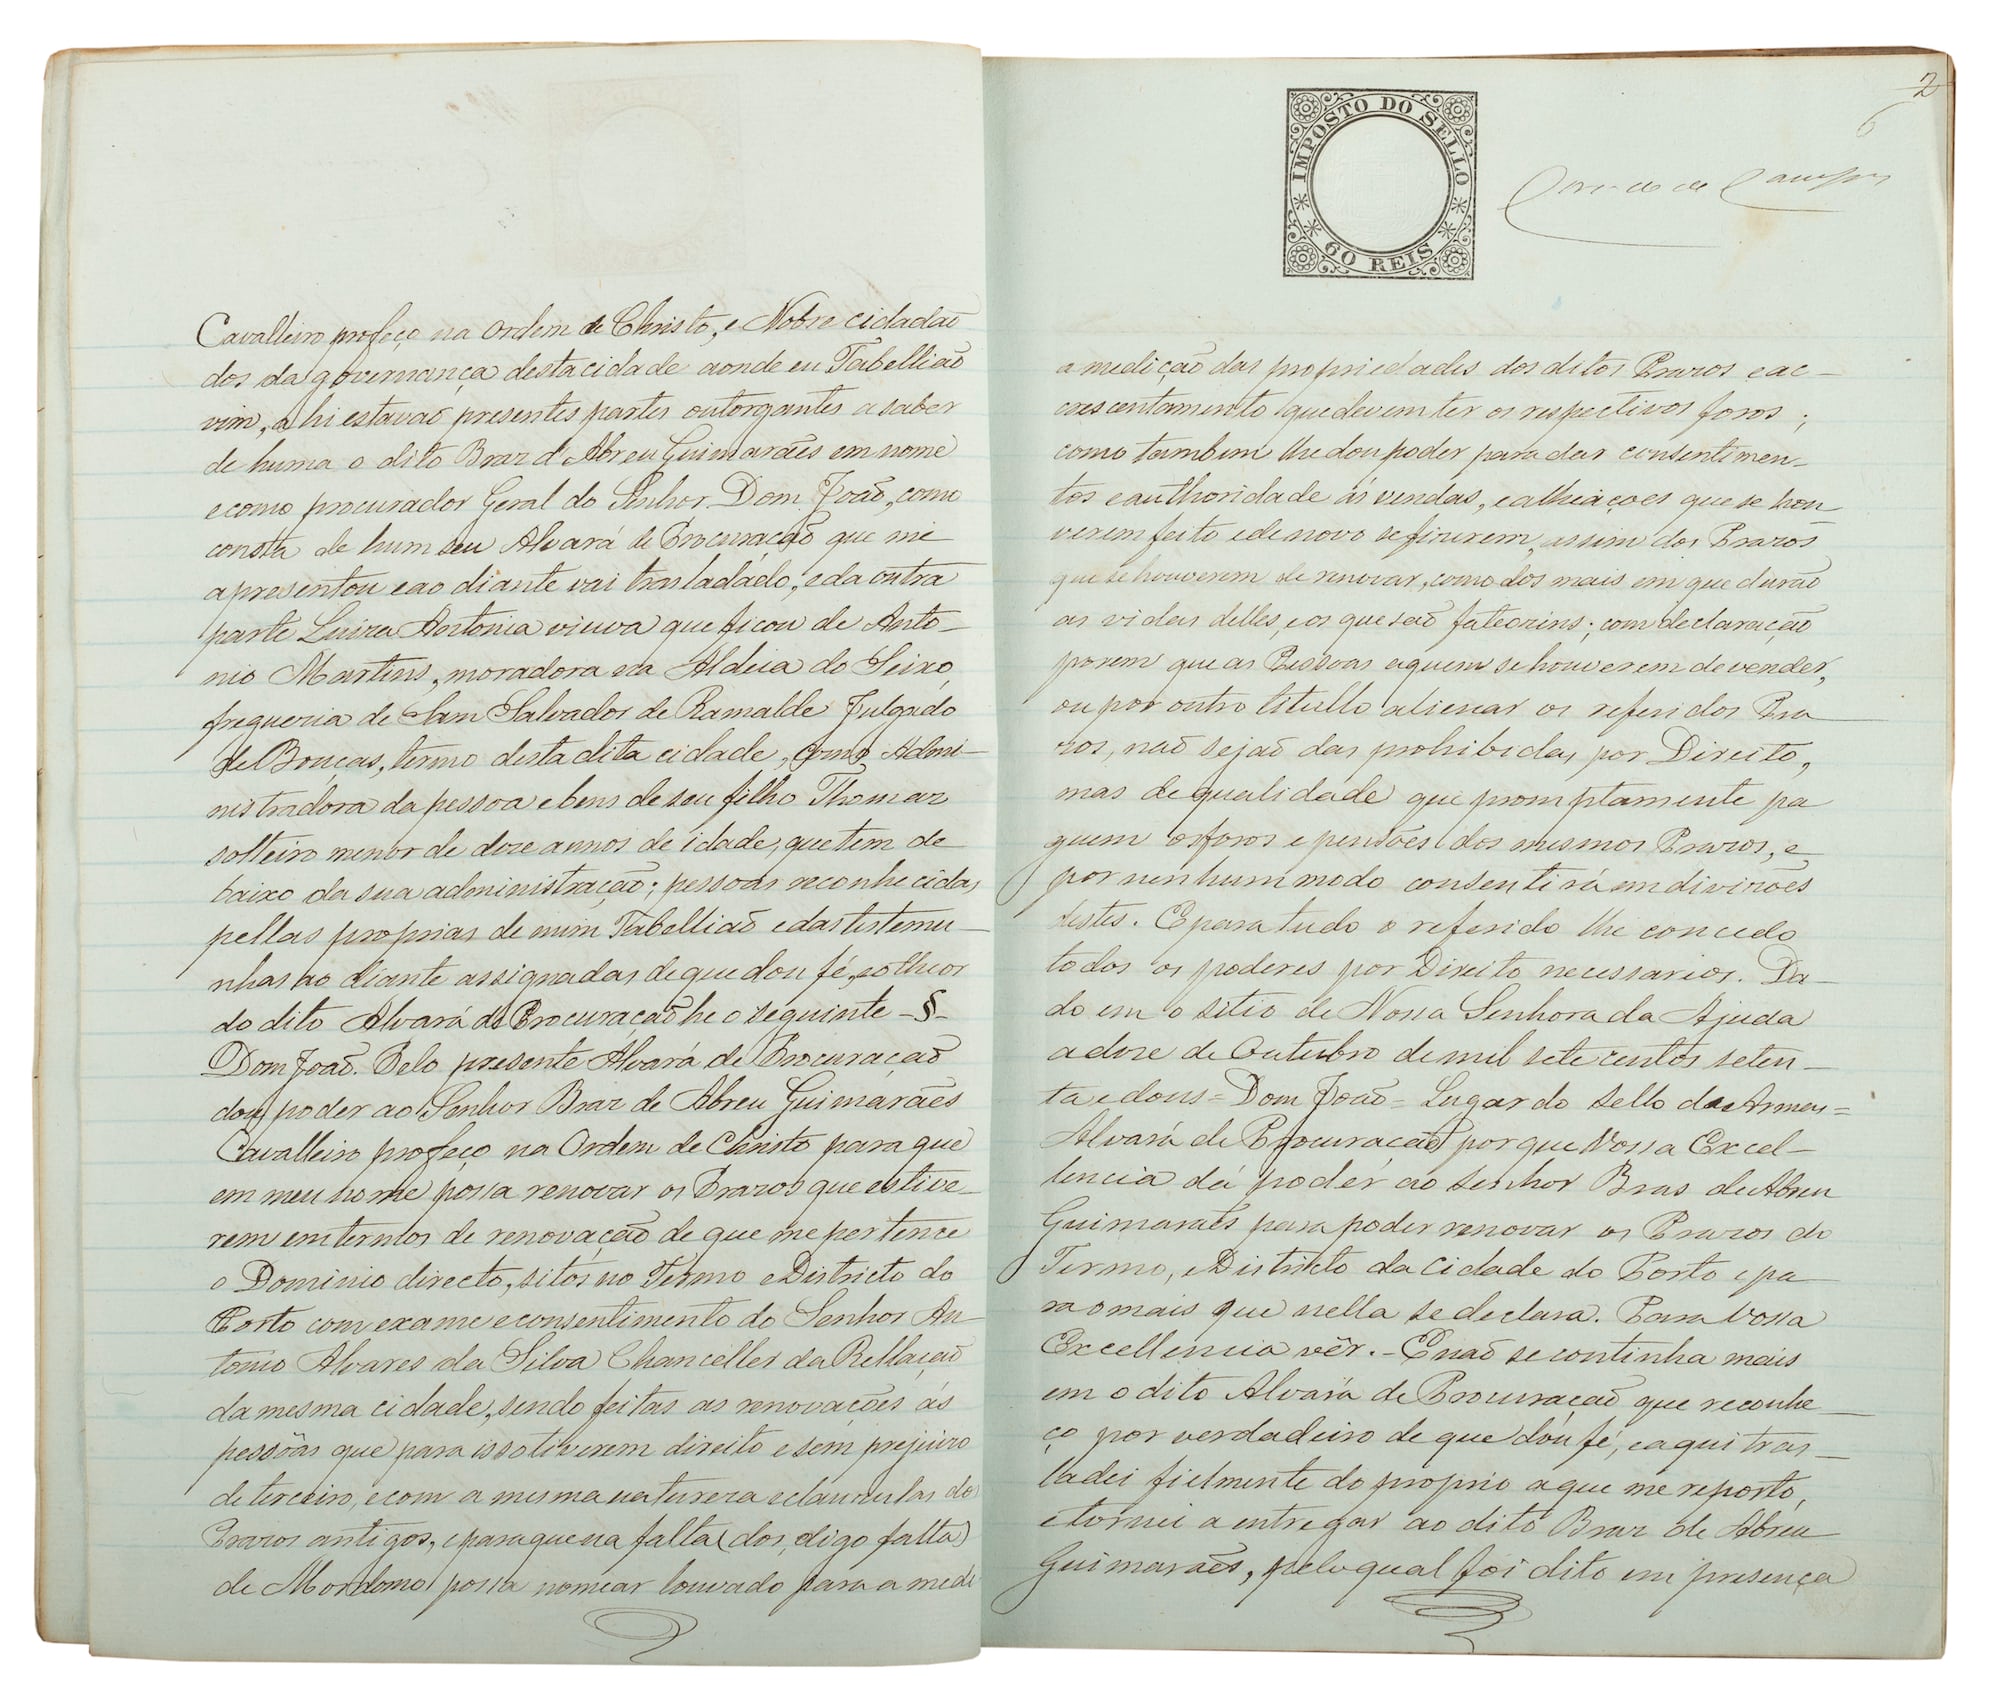 Cavalleiro profeço na Ordem de Christo, e Nobre cidadaõ
dos da governança desta cidade aonde eu Tabelliaõ
vim, ahi estavaõ presentes partes outorgantes a saber
de huma o dito Braz d'Abreu Guimarães em nome
e como procurador Geral do Senhor Dom Joaõ, como
consta de hum seu Alvará de Procuraçaõ que me
apresentou e ao diante vai trasladado, e da outra
parte Luiza Antonia viuva que ficou de Anto-
nio Martins, moradora na Aldeia do Seixo,
freguezia de Sam Salvador de Ramalde Julgado
de Bouças, termo desta dita cidade, como Admi-
nistradora da pessoa e bens de seu filho Thomaz
solteiro menor de doze annos de idade, que tem de
baixo da sua administraçaõ; pessoas reconhecidas
pellas proprias de mim Tabelliaõ e das testemu-
nhas ao diante assignadas de que dou fé, e o theor
do dito Alvará de Procuraçaõ he o seguinte -§-
Dom Joaõ. Pelo presente Alvará de Procuraçaõ
dou poder ao Senhor Braz de Abreu Guimarães
Cavalleiro profeço na Ordem de Christo para que
em meu nome possa renovar os Prazos que estive-
rem em termos de renovaçaõ de que me pertence
o Dominio directo, sitos no Termo e Districto do
Porto com exame e consentimento do Senhor An-
tonio Alvares da Silva Chanceller da Rellaçaõ
da mesma cidade, sendo feitas as renovações ás
pessôas que para isso tiverem direito e sem prejuizo
de terceiro, e com a mesma natureza e clauzulas dos
Prazos antigos, e para que na falta (dos, digo falta)
de Mordomo possa nomear louvado para a medi
IMPOSTO DO SELLO
60 REIS
2
6
a medição das propriedades dos ditos Prazos e ac-
crescentamento que devem ter os respectivos foros;
como tambem lhe dou poder para dar consentimen-
tos e authoridade ás vendas, e alheiações que se hou-
verem feito e de novo se fizerem, assim dos Prazos
que se houverem de renovar, como dos mais em que duraõ
as vidas delles, e os que saõ fateozins; com declaraçaõ
porem que as Pessoas a quem se houverem de vender,
ou por outro titullo alienar os referidos Pra
zos, naõ sejaõ das prohibidas por Direito,
mas de qualidade que promptamente pa
guem os foros e pensões dos mesmos Prazos, e
por nenhum modo consentirá em divizões
destes. E para tudo o referido lhe concedo
todos os poderes por Direito necessarios. Da-
do em o sitio de Nossa Senhora da Ajuda
a doze de Outubro de mil sete centos seten-
ta e dous = Dom Joaõ = Lugar do Sello das Armas =
Alvará de Procuraçaõ por que Vossa Excel-
lencia dá podér ao Senhor Bras de Abreu
Guimaraẽs para poder renovar os Prazos do
Termo, e Districto da Cidade do Porto e pa
ra o mais que nella se declara. Para Vossa
Excellencia vêr. - E naõ se continha mais
em o dito Alvará de Procuraçaõ que reconhe-
ço por verdadeiro de que dou fé, e aqui tras-
ladei fielmente do proprio a que me reporto,
e tornei a entregar ao dito Braz de Abreu
Guimaraẽs, pelo qual foi dito em presença